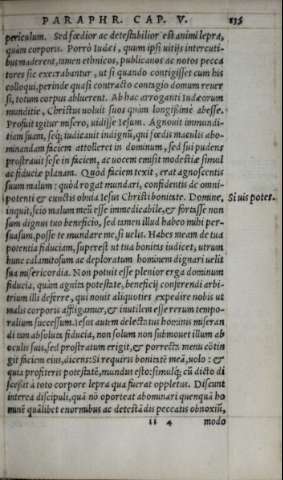 PARAPHR. CAP. V. 135
periculum. Sed fœdior ac detestabilior est animi lepra,
quàm corporis. Porrò Iudæi, quum ipsi uitijs intercuti-
bus maderent, tamen ethnicos, publicanos ac notos pecca
tores sic execrabantur, ut si quando contigisset cum his
colloqui, perinde quasi contracto contagio domum reuer
si, totum corpus abluerent. Ab hac arroganti Iudæorum
mundície, Christus uoluit suos quàm longissimè abesse.
Prosuit igitur misero, utilisse Iesum. Agnouit immundi-
tiam suam, seq; iudicauit indignū, qui fœdis maculis abo-
minandam faciem attolleret in dominum, sed sui pudens
prostrauit sese in faciem, ac uocem emisit modestiæ simul
ac fiduciæ plenam. Quòd faciem texit, erat agnoscentis
suum malum: quòd rogat mundari, confidentis de omni-
potenti & cunctis obuia Iesus Christi bonitate. Domine,
Si uis potes.
inquit, scio malum meū esse immedicabile, & fortasse non
sum dignus tuo beneficio, sed tamen illud habeo mihi per-
suasum, posse te mundare me, si uelis. Habes meam de tua
potentia fiduciam, superest ut tua bonitas iudicet, utrum
hunc calamitosum ac deploratum hominem dignari uelit
sua misericordia. Non potuit esse plenior erga dominum
fiducia, quàm agnita potestate, beneficij conferendi arbi-
trium illi deferre, qui nouit aliquoties expedire nobis ut
malis corporis affligamur, & inutilem esse rerum tempo-
ralium successum. Iesus autem delectatus hominis miseran
di tam absoluta fiducia, non solum non submouet illum ab
oculis suis, sed prostratum erigit, & porrecta manu cōtin
git faciem eius, dicens: Si requiris bonitatē meā, uolo: &
quia profiteris potestatē, mundus esto: simulq; cū dicto di
scessit à toto corpore lepra qua fuerat oppletus. Discunt
interea discipuli, quā nō oporteat abominari quenquā ho
minē quālibet enormibus ac detestādis peccatis obnoxiū,
ll 4 modo